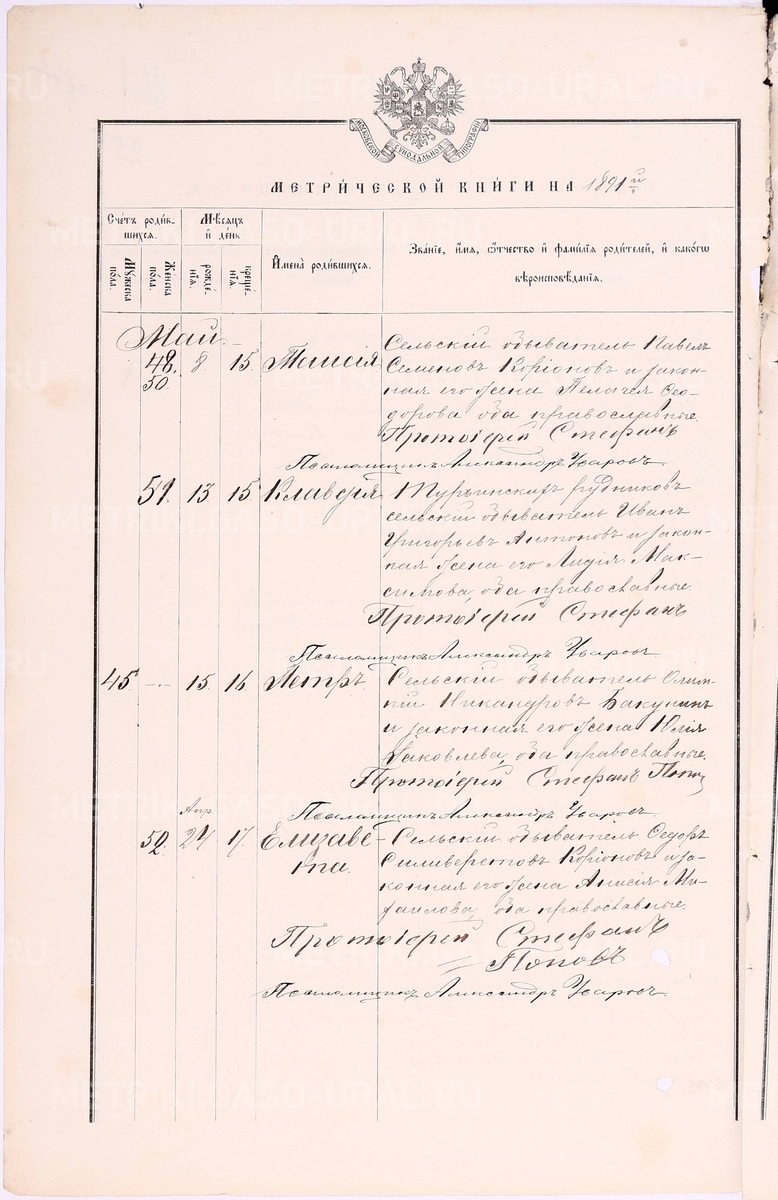 МОСКОВСКОЙ СѴНОДАЛЬНОЙ ТИПОГРАФІИ
МЕТРИ́ЧЕСКОЙ КНИ́ГИ НА 1891 й
Сче́тъ роди́вшихся.
Мѣ́сяцъ и҆ де́нь
И҆мена̀ роди́вшихся.
Зва́ніе, и҆́мя, ѻ҆́тчество и҆ фами́лїя роди́телей, и҆ како́гѡ
вѣроисповѣ́данїя.
Мꙋ́жеска по́ла.
Же́нска по́ла.
рожде́нїя.
креще́нїя.
Май.
49. 8 15. Таисія Сельскій обыватель Павелъ
50 Семеновъ Коріоновъ и закон-
ная его жена Пелагея Ѳео-
дорова, оба православные.
Протоіерей Стефанъ
Псаломщикъ Александръ Уваровъ
51. 13 15 Клавдія Турьинскихъ рудниковъ
сельскій обыватель Иванъ
Григорьевъ Антоновъ и закон-
ная жена его Лидія Мак-
симова, оба православные.
Протоіерей Стефанъ
Псаломщикъ Александръ Уваровъ
45 - 15. 16 Петръ. Сельскій обыватель Олим-
пій Никандровъ Бакунинъ
и законная его жена Юлія
Яковлева, оба православные.
Протоіерей Стефанъ Попов
Псаломщикъ Александръ Уваровъ.
Апр.
52. 24 17. Елизаве- Сельскій обыватель Ѳедоръ
та. Силиверстовъ Коріоновъ и за-
конная его жена Анисія Ми-
хаилова, оба православные.
Протоіерей Стефанъ
Поповъ
Псаломщикъ Александръ Уваровъ.